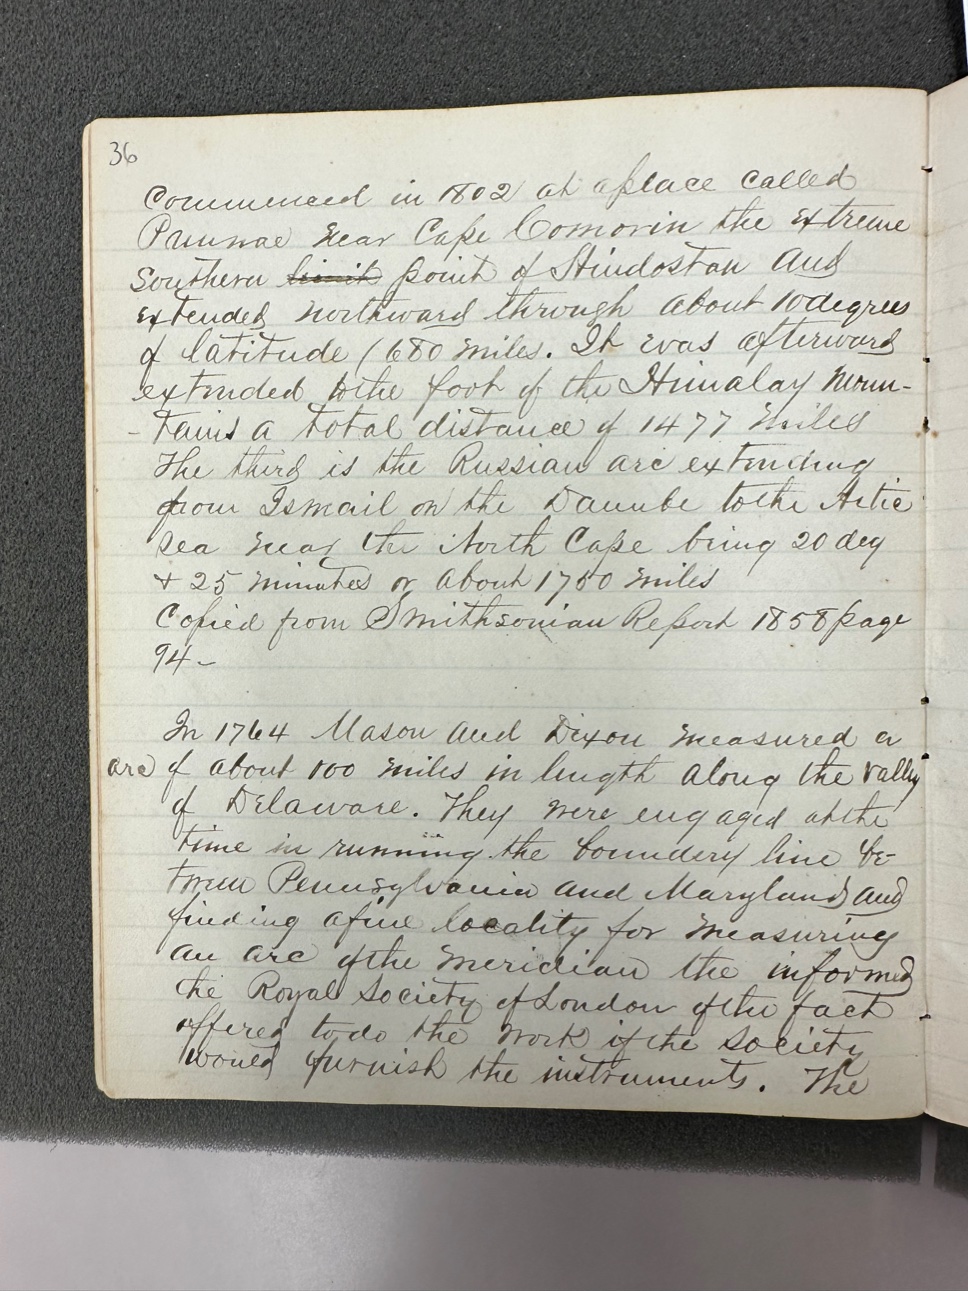 36
Commenced in 1802 at a place called
Punnae near Cape Comorin the extreme
Southern limit point of Hindostan and
extended northward through about 10 degrees
of latitude / 680 miles. It was afterward
extended to the foot of the Himalay Moun-
- tains a total distance of 1477 miles
The third is the Russian arc extending
from Ismail on the Danube to the Artic
Sea near the North Cape being 20 deg
& 25 minutes or about 1750 miles
Copied from Smithsonian Report 1858 page
94-
In 1764 Mason and Dixon measured a
arc of about 100 miles in length along the valley
of Delaware. They were engaged at the
time in running the boundery line be-
tween Pennsylvania and Maryland and
finding a fine locality for measuring
an arc of the meridian the informed
the Royal Society of London of the fact
offered to do the work if the Society
would furnish the instruments. The